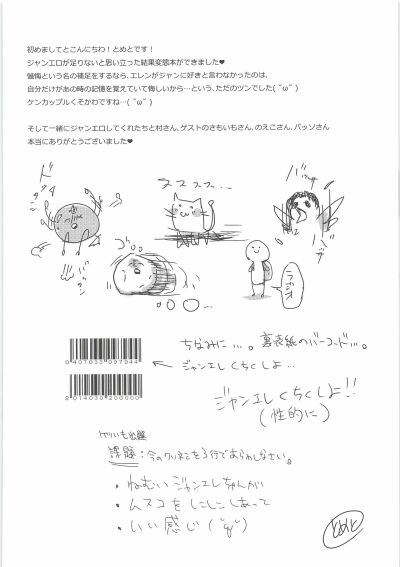 初めましてとこんにちわ！とめとです！
ジャンエロが足りないと思い立った結果変態本ができました♥
懺悔という名の補足をするなら、エレンがジャンに好きと言わなかったのは、
自分だけがあの時の記憶を覚えていて悔しいから…という、ただのツンでした( ˘ω˘ )
ケンカップルくそかわですね…( ˘ω˘ )
そして一緒にジャンエロしてくれたちと村さん、ゲストのさもいもさん、のえこさん、バッソさん
本当にありがとうございました♥
ススス…
ゴロロ
ちなみに…。裏表紙のバーコード…。
0407033097944
ジャンエレくちくしよ…
2014030200000
ジャンエレくちくしよ!!
(性的に)
課題：今のクリネコを3行であらわしなさい。
・ねむいジャンエレちゃんが
・ムスコをしこしこしあって
・いい感じ( ˘ω˘ )
とめと